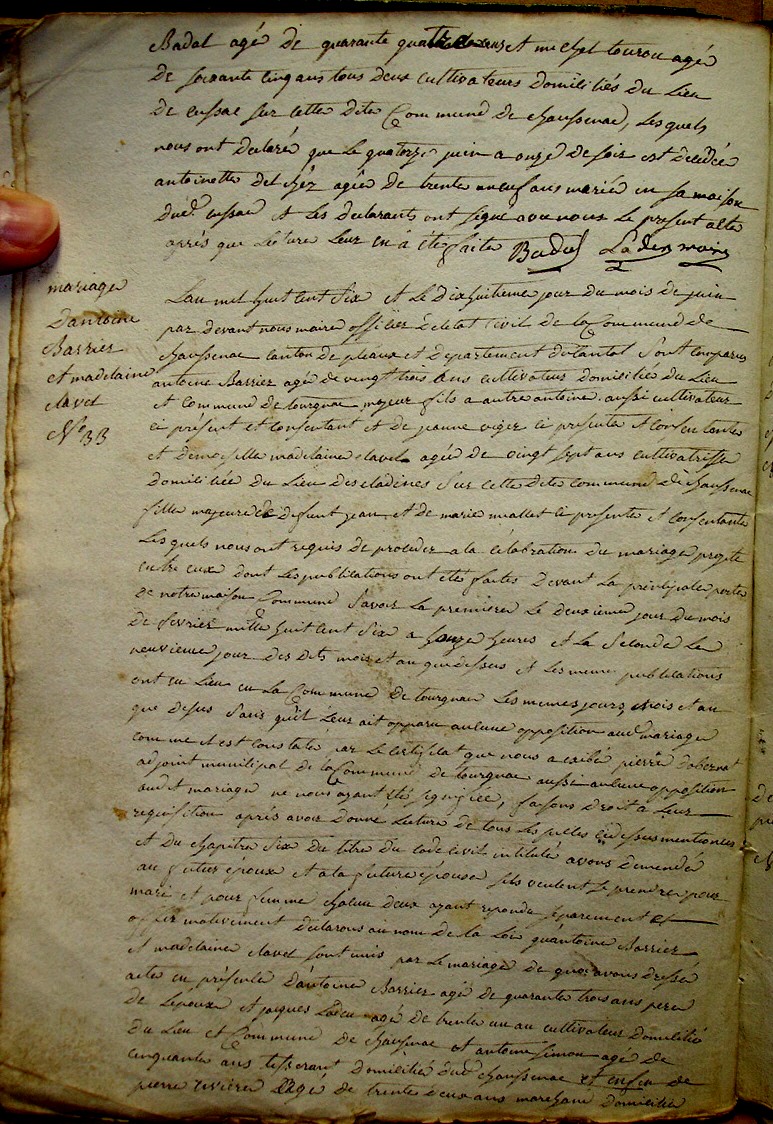 Badal agé de quarante quatre ans et michel tourou agé
de soixante cinq ans tous deux cultivateurs domiciliés du Lieu
de cussac sur cette dite Commune de chaussenac, Lesquels
nous ont declaré que Le quatorze juin a onze de soir est décédée
antoinette delchéz agée de trente neuf ans mariée en sa maison
dud. cussac et Les declarants ont signé avec nous Le present acte
aprés que Lecture Leur en á été faite Badal
mariage
d'antoine
Barrier
et madelaine
clavel
N° 33
Lan mil huit cent six et Le dix huitieme jour du mois de juin
par devant nous maire officier de létat Civil de la Commune de
chaussenac canton de pleaux et departement du Cantal Sont comparus
antoine Barrier agé de vingt trois ans cultivateur domicilié du Lieu
et Commune de tourgnac majeur fils a autre antoine aussi cultivateur
ci présent et consentant et de jeanne viger ci presente et consentante
et demoiselle madelaine clavel agée de vingt sept ans cultivatrisse
domiciliée du Lieu des cladines sur cette dite commune de chaussenac
fille majeure de defunt jean et de marie miallet ci presente et consentante
Lesquels nous ont requis de proceder a la célébration du mariage projetté
entre eux dont Les publications ont été faites devant La principale porte
de notre maison Commune savoir La premiere Le deuxieme jour du mois
de fevrier mille huit cent six a honze heures et La seconde Le
neuvieme jour des dits mois et an que dessus et Les meme publications
ont eu Lieu en La Commune de tourgnac Les memes jours, mois et an
que dessus sans qu'il Leur ait apparu aucune opposition aud. mariage
comme il est constaté par Le certificat que nous a exibé pierre
adjoint municipal de la Commune de tourgnac aussi aucune opposition
audit mariage ne nous ayant été signifiée, faisons droit a Leur
requisition aprés avoir donné Lecture de tous Les pieces cidessus mentionées
et du chapitre six du titre du code civil intitulé avons demandé
au futur époux et a la future épouse sils veulent se prendre pour
mari et pour femme chacun deux ayant repondu séparement et
affirmativement declarons au nom de la Loi qu'antoine Barrier
et madelaine clavel sont unis par Le mariage de quoi avons dressé
acte en présence d'antoine Barrier agé de quarante trois ans pere
de Lepoux et jacques agé de trente un an cultivateur domicilié
du Lieu et Commune de chaussenac et antoine simon agé de
cinquante ans tisserant domicilié dud. chaussenac et enfin de
pierre riviere agé de trente deux ans marchand domicilié